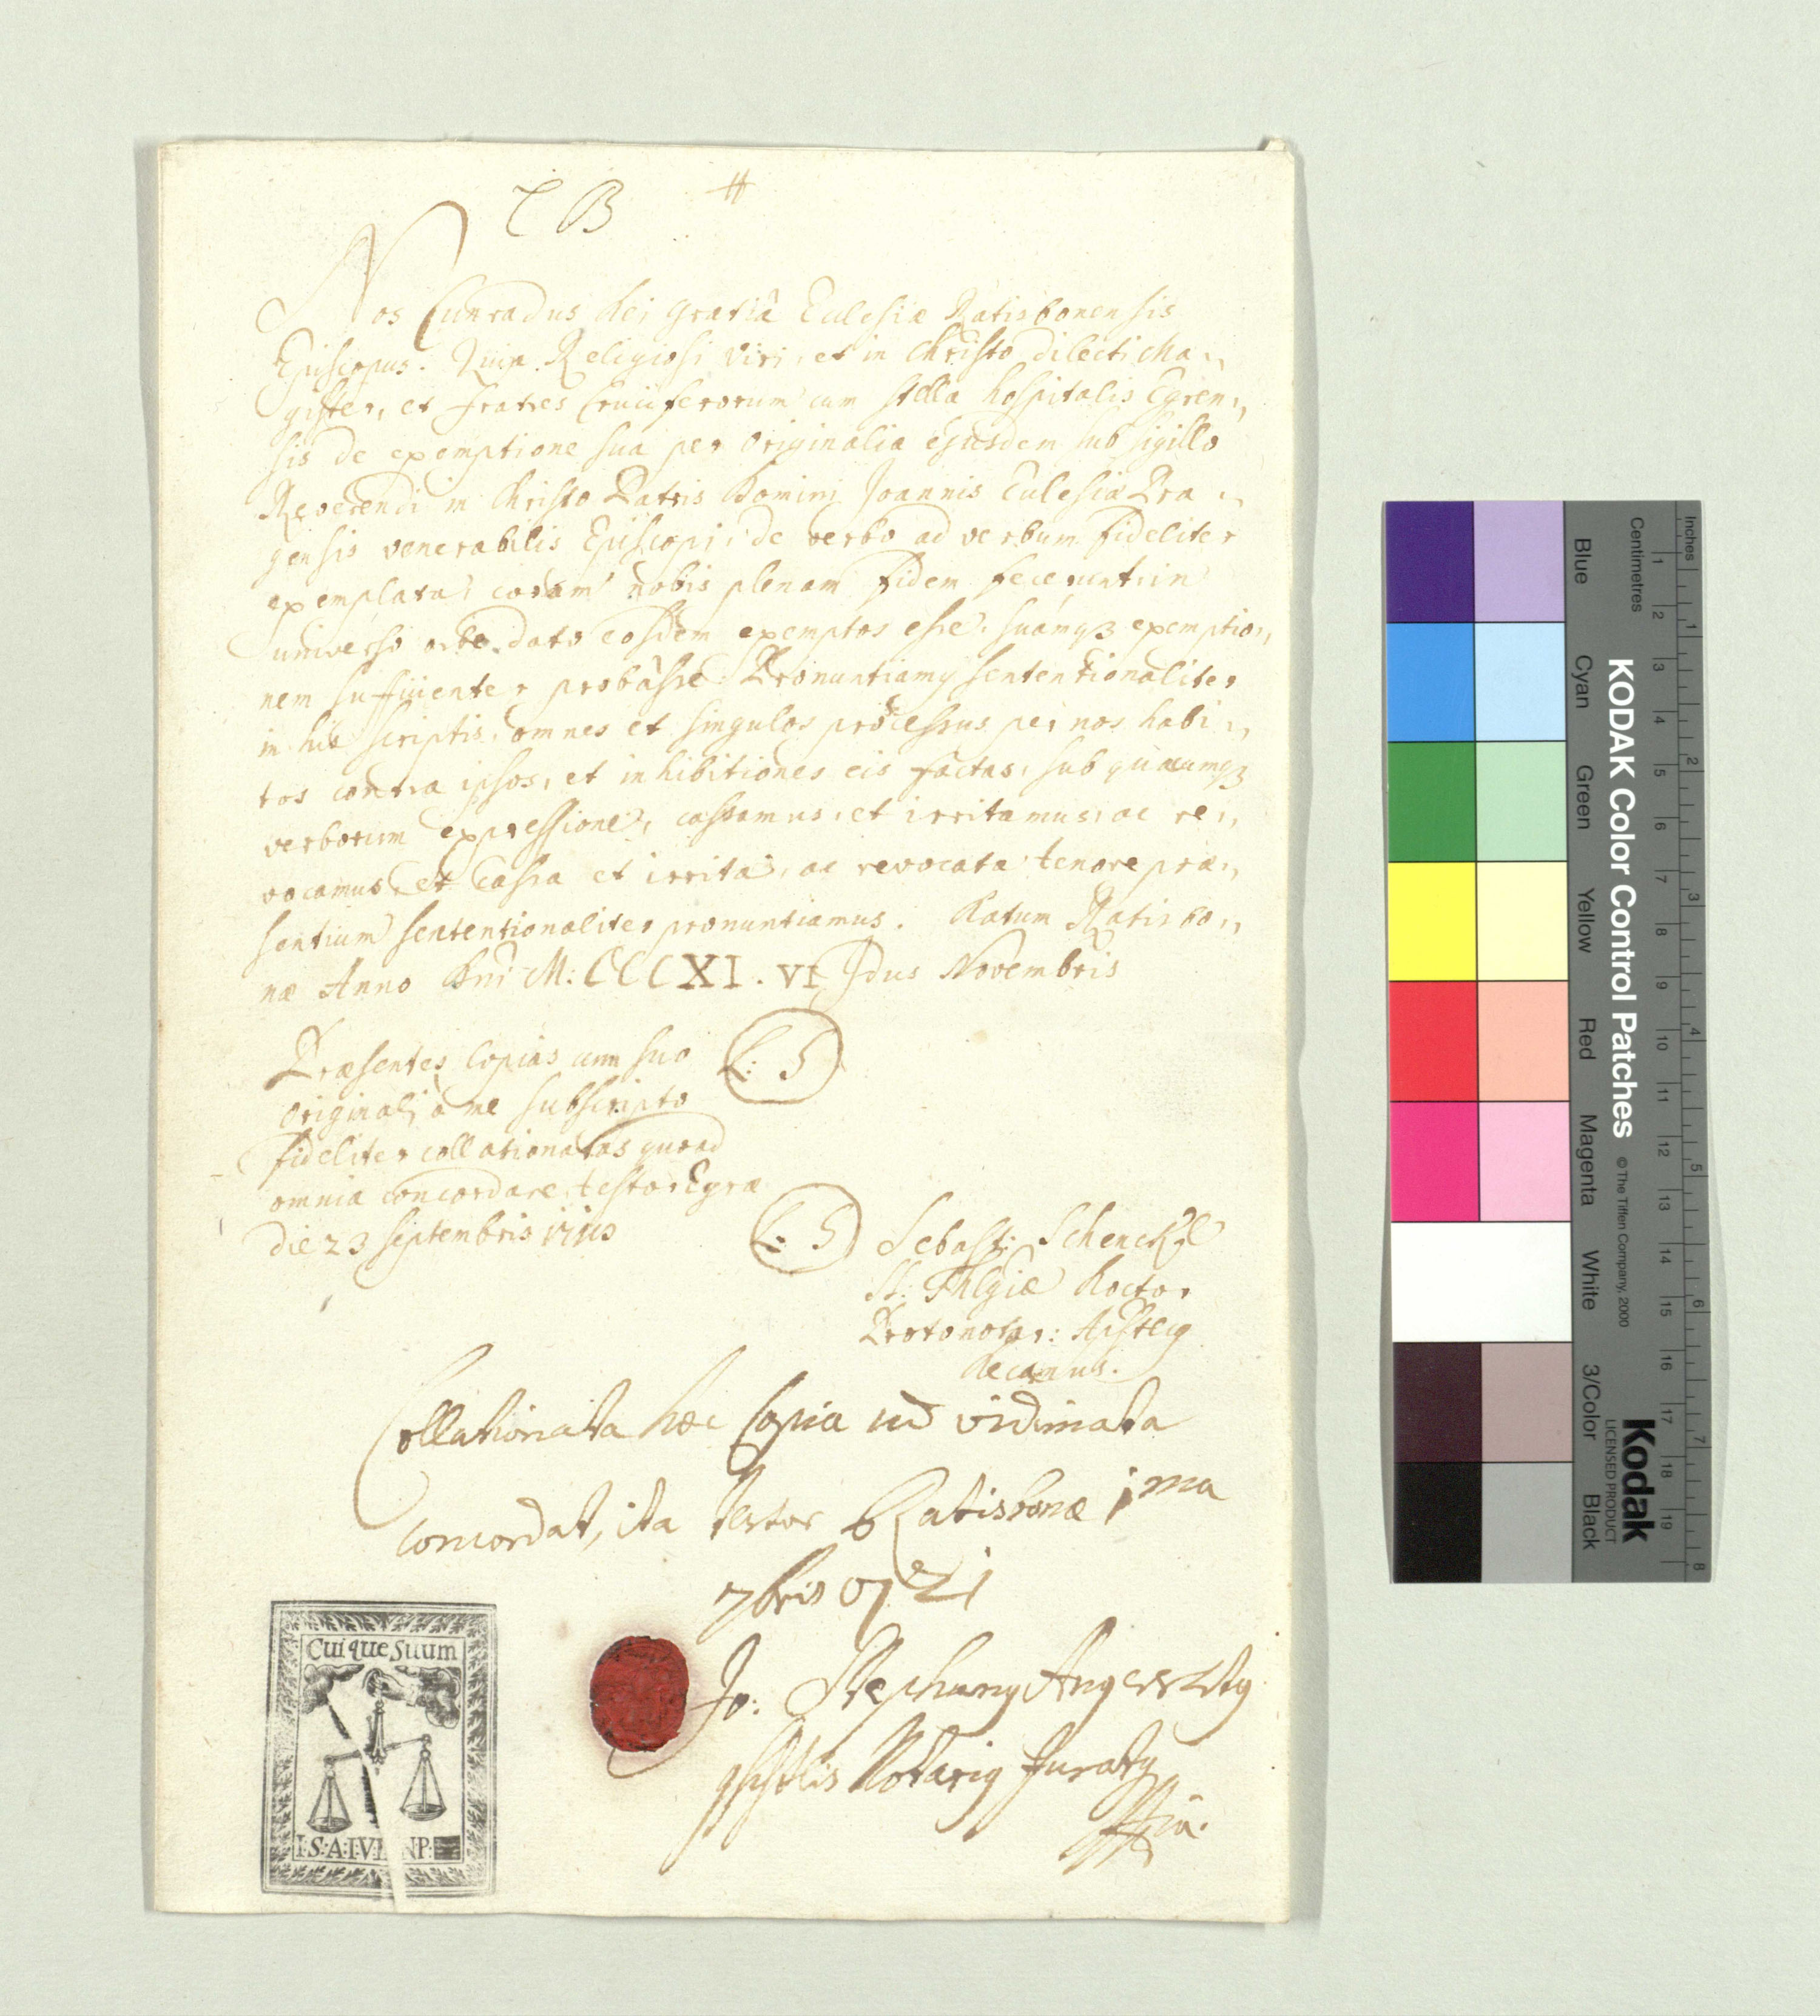 C B #
Nos Cunradus Dei gratiâ Ecclesiæ Ratisbonensis
Episcopus. Quia Religiosi Viri, et in Christo dilecti Ma„
gister, et Fratres Cruciferorum cum stella hospitalis Egren„
sis de exemptione sua per originalia ejusdem sub sigillo
Reverendi in Christo Patris Domini Joannis Ecclesiæ Pra„
gensis venerabilis Episcopi, de verbo ad verbum fideliter
exemplata, coram nobis plenam fidem fecerunt, in
universo orbe dato eosdem exemptos esse, suámq3 exemptio„
nem sufficienter probâsse Pronuntiamy sententionaliter
in his scriptis, omnes et singulos processus per nos habi„
tos contra ipsos, et inhibitiones eis factas, sub quacumq3
verborum expressione, cassamus, et irritamus, ac re„
vocamus, et cassa et irrita, ac revocata tenore præ„
sentium sententionaliter pronuntiamus. Datum Ratisbo„
næ Anno Dni M: CCCXI. VI Idus Novembris
Præsentes Copias cum suo L: S
originali à me subscripto
fideliter collationatas quoad
omnia concordare testor Egræ
die 23 septembris
L: S Sebast: Schenckl
SS: Thlgiæ Doctor
Protonotar: Apstcig
Decanus.
Collationata hæc Copia cũ vidimata
concordat, ita testor Ratisbonæ 1ma
7bris 1721
Jo: Stephany
Notarig Juraty
Cuique Suum
I·S·A·I·V· NP:
Inches
Centimetres
1 2 3 4 5 6 7 8 9 10 11 12 13 14 15 16 17 18 19
1 2 3 4 5 6 7 8
KODAK Color Control Patches © The Tiffen Company, 2000 Kodak
LICENSED PRODUCT
Blue Cyan Green Yellow Red Magenta White 3/Color Black